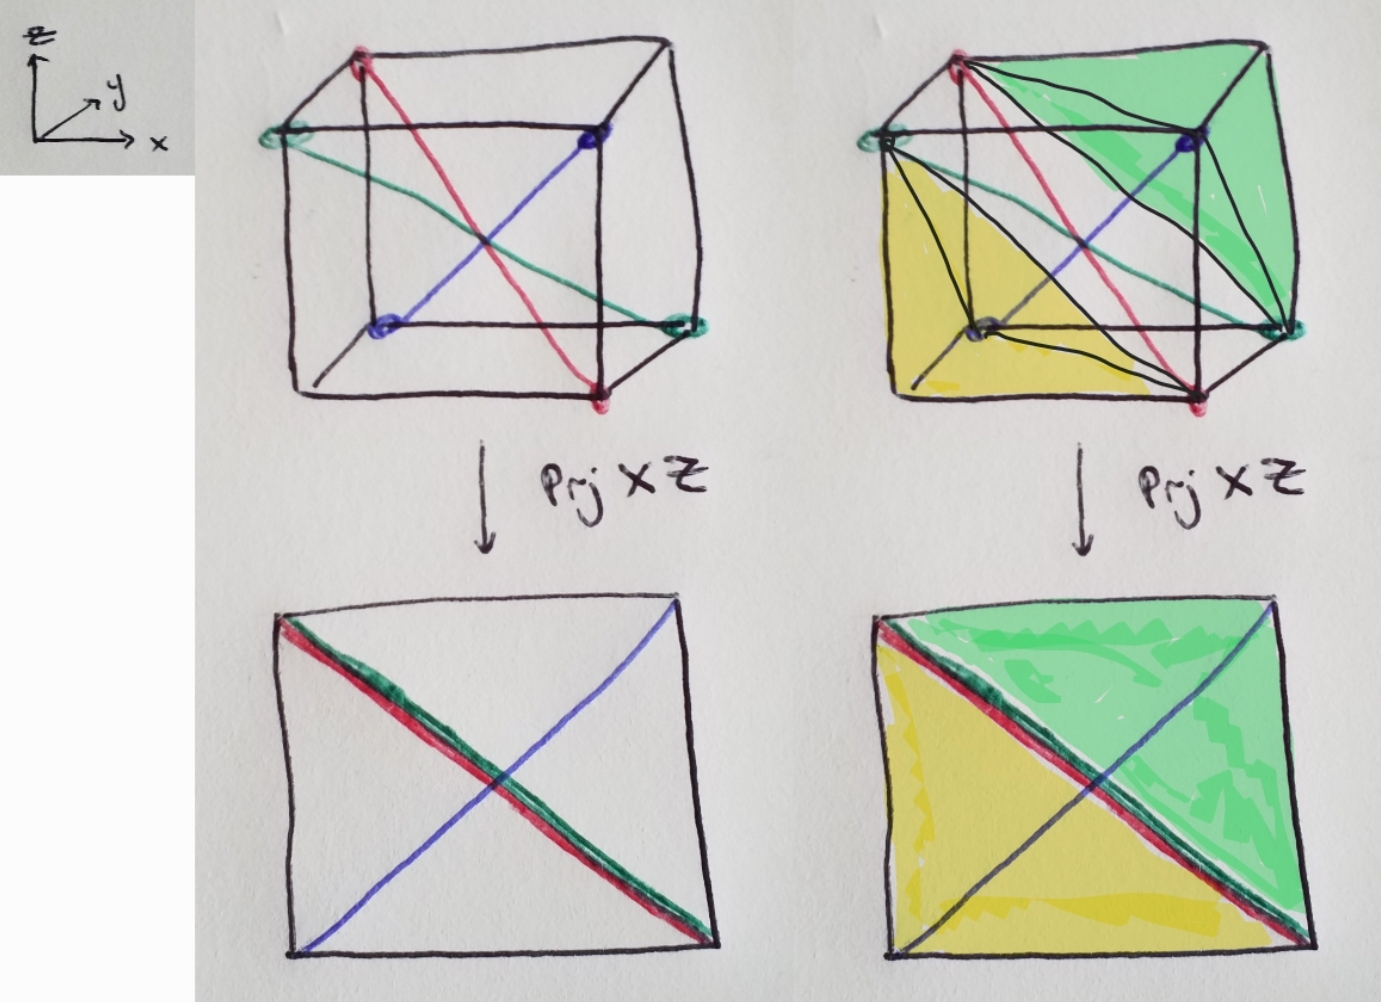 z
y
x
Prj XZ
Prj XZ